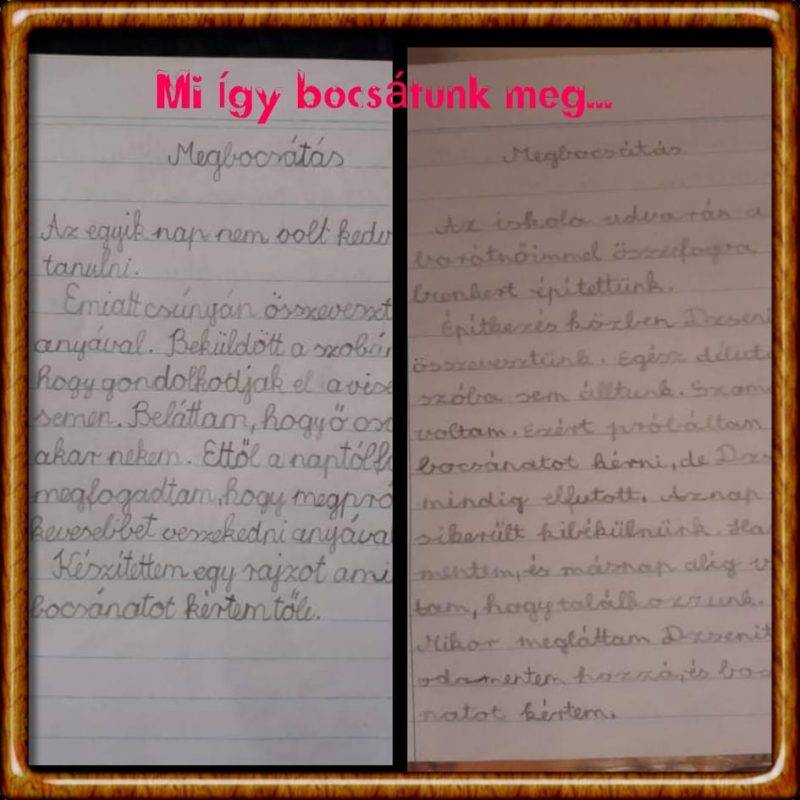 Mi így bocsátunk meg...
Megbocsátás
Az egyik nap nem volt kedv
tanulni.
Emiatt csúnyán összeveszt
anyával. Beküldött a szobám
hogy gondolkodjak el a vise
semen. Beláttam, hogy ő
akar nekem. Ettől a naptól
megfogadtam, hogy megpró
kevesebbet veszekedni anyával
Készítettem egy rajzot ami
bocsánatot kértem tőle.
Megbocsátás
Az iskola udvarán a
barátnőimmel összefogva
bunkert építettünk.
Építkezés közben Dzseni
összevesztünk. Egész délut
szóba sem álltunk. Szom
voltam. Ezért próbáltam
bocsánatot kérni, de Dzs
mindig elfutott. Aznap
sikerült kibékülnünk. Ha
mentem, és másnap alig v
tam, hogy találkozzunk.
Mikor megláttam Dzsenit
odamentem hozzá, és boc
natot kértem.